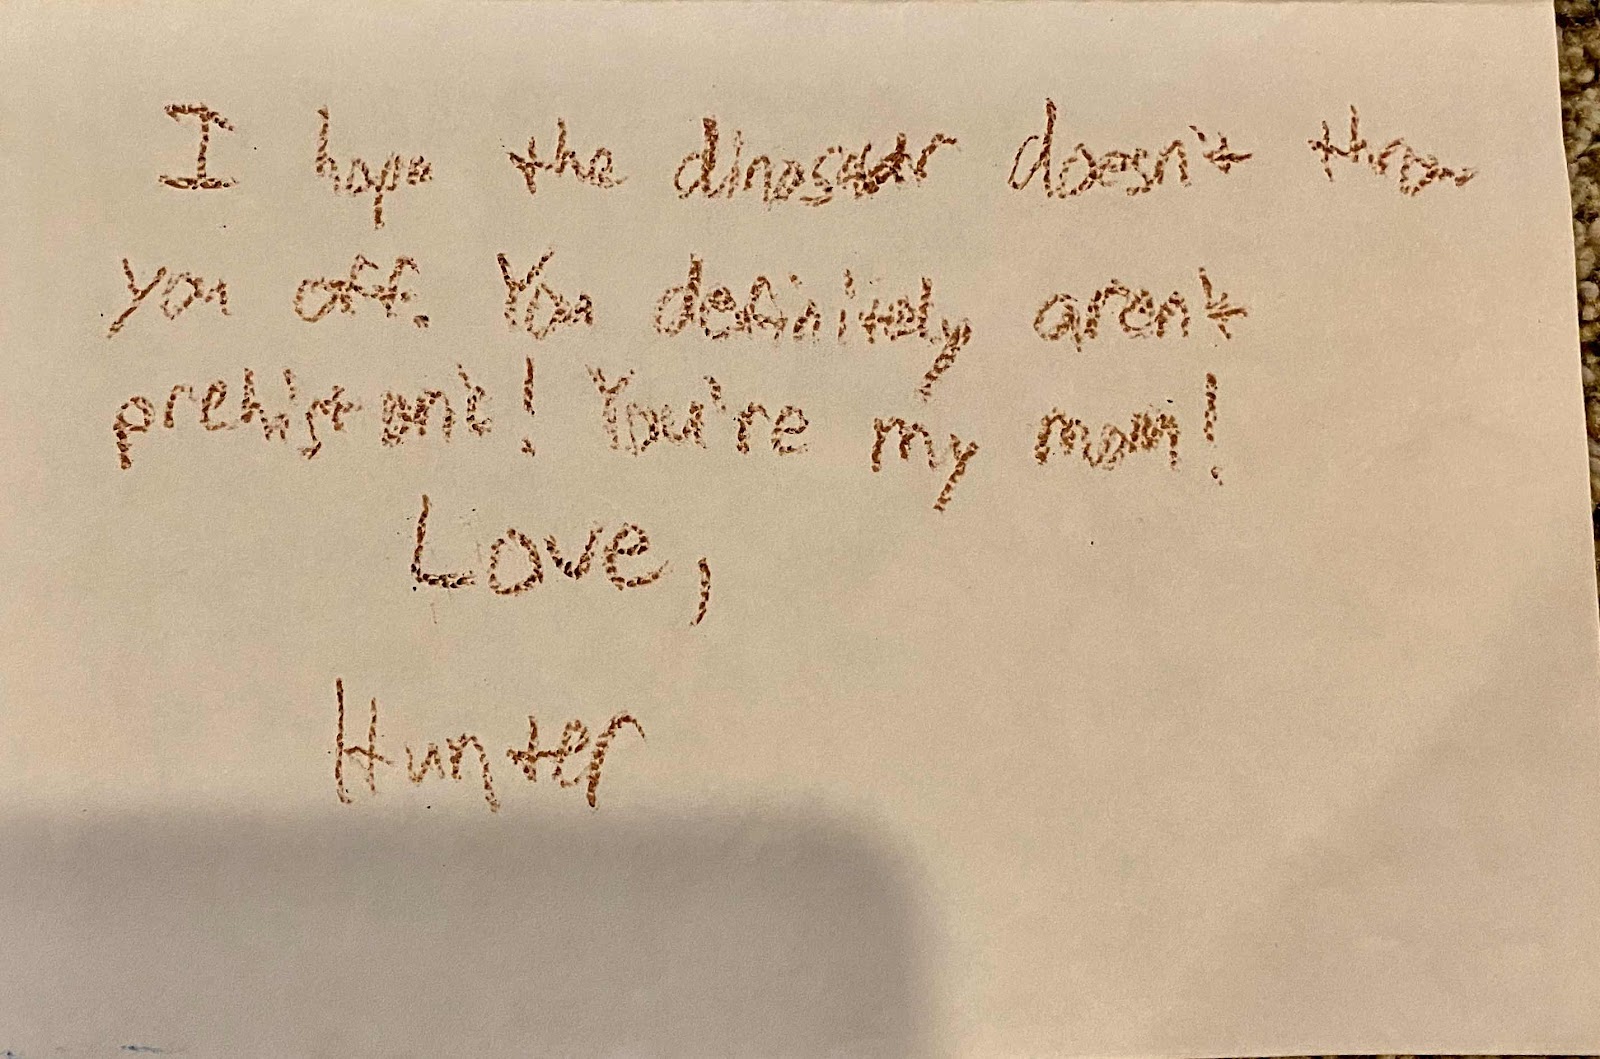 I hope the dinosaur doesn't throw
you off. You definitely aren't
prehistoric! You're my mom!
Love,
Hunter